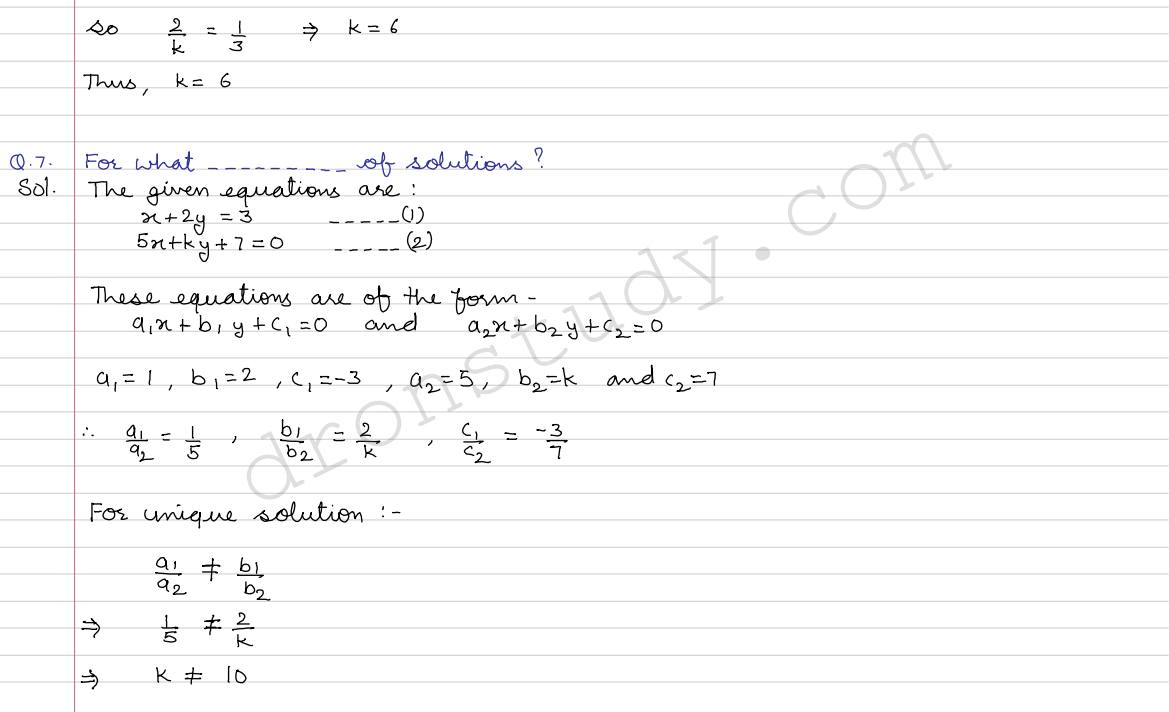 so 2/k = 1/3 ⇒ k = 6
Thus, k = 6
Q.7. For what _________ of solutions?
Sol. The given equations are :
x + 2y = 3 _____(1)
5x + ky + 7 = 0 _____(2)
These equations are of the form -
a₁x + b₁y + c₁ = 0 and a₂x + b₂y + c₂ = 0
a₁ = 1, b₁ = 2, c₁ = -3, a₂ = 5, b₂ = k and c₂ = 7
∴ a₁/a₂ = 1/5, b₁/b₂ = 2/k, c₁/c₂ = -3/7
For unique solution :-
a₁/a₂ ≠ b₁/b₂
⇒ 1/5 ≠ 2/k
⇒ k ≠ 10
dronstudy.com